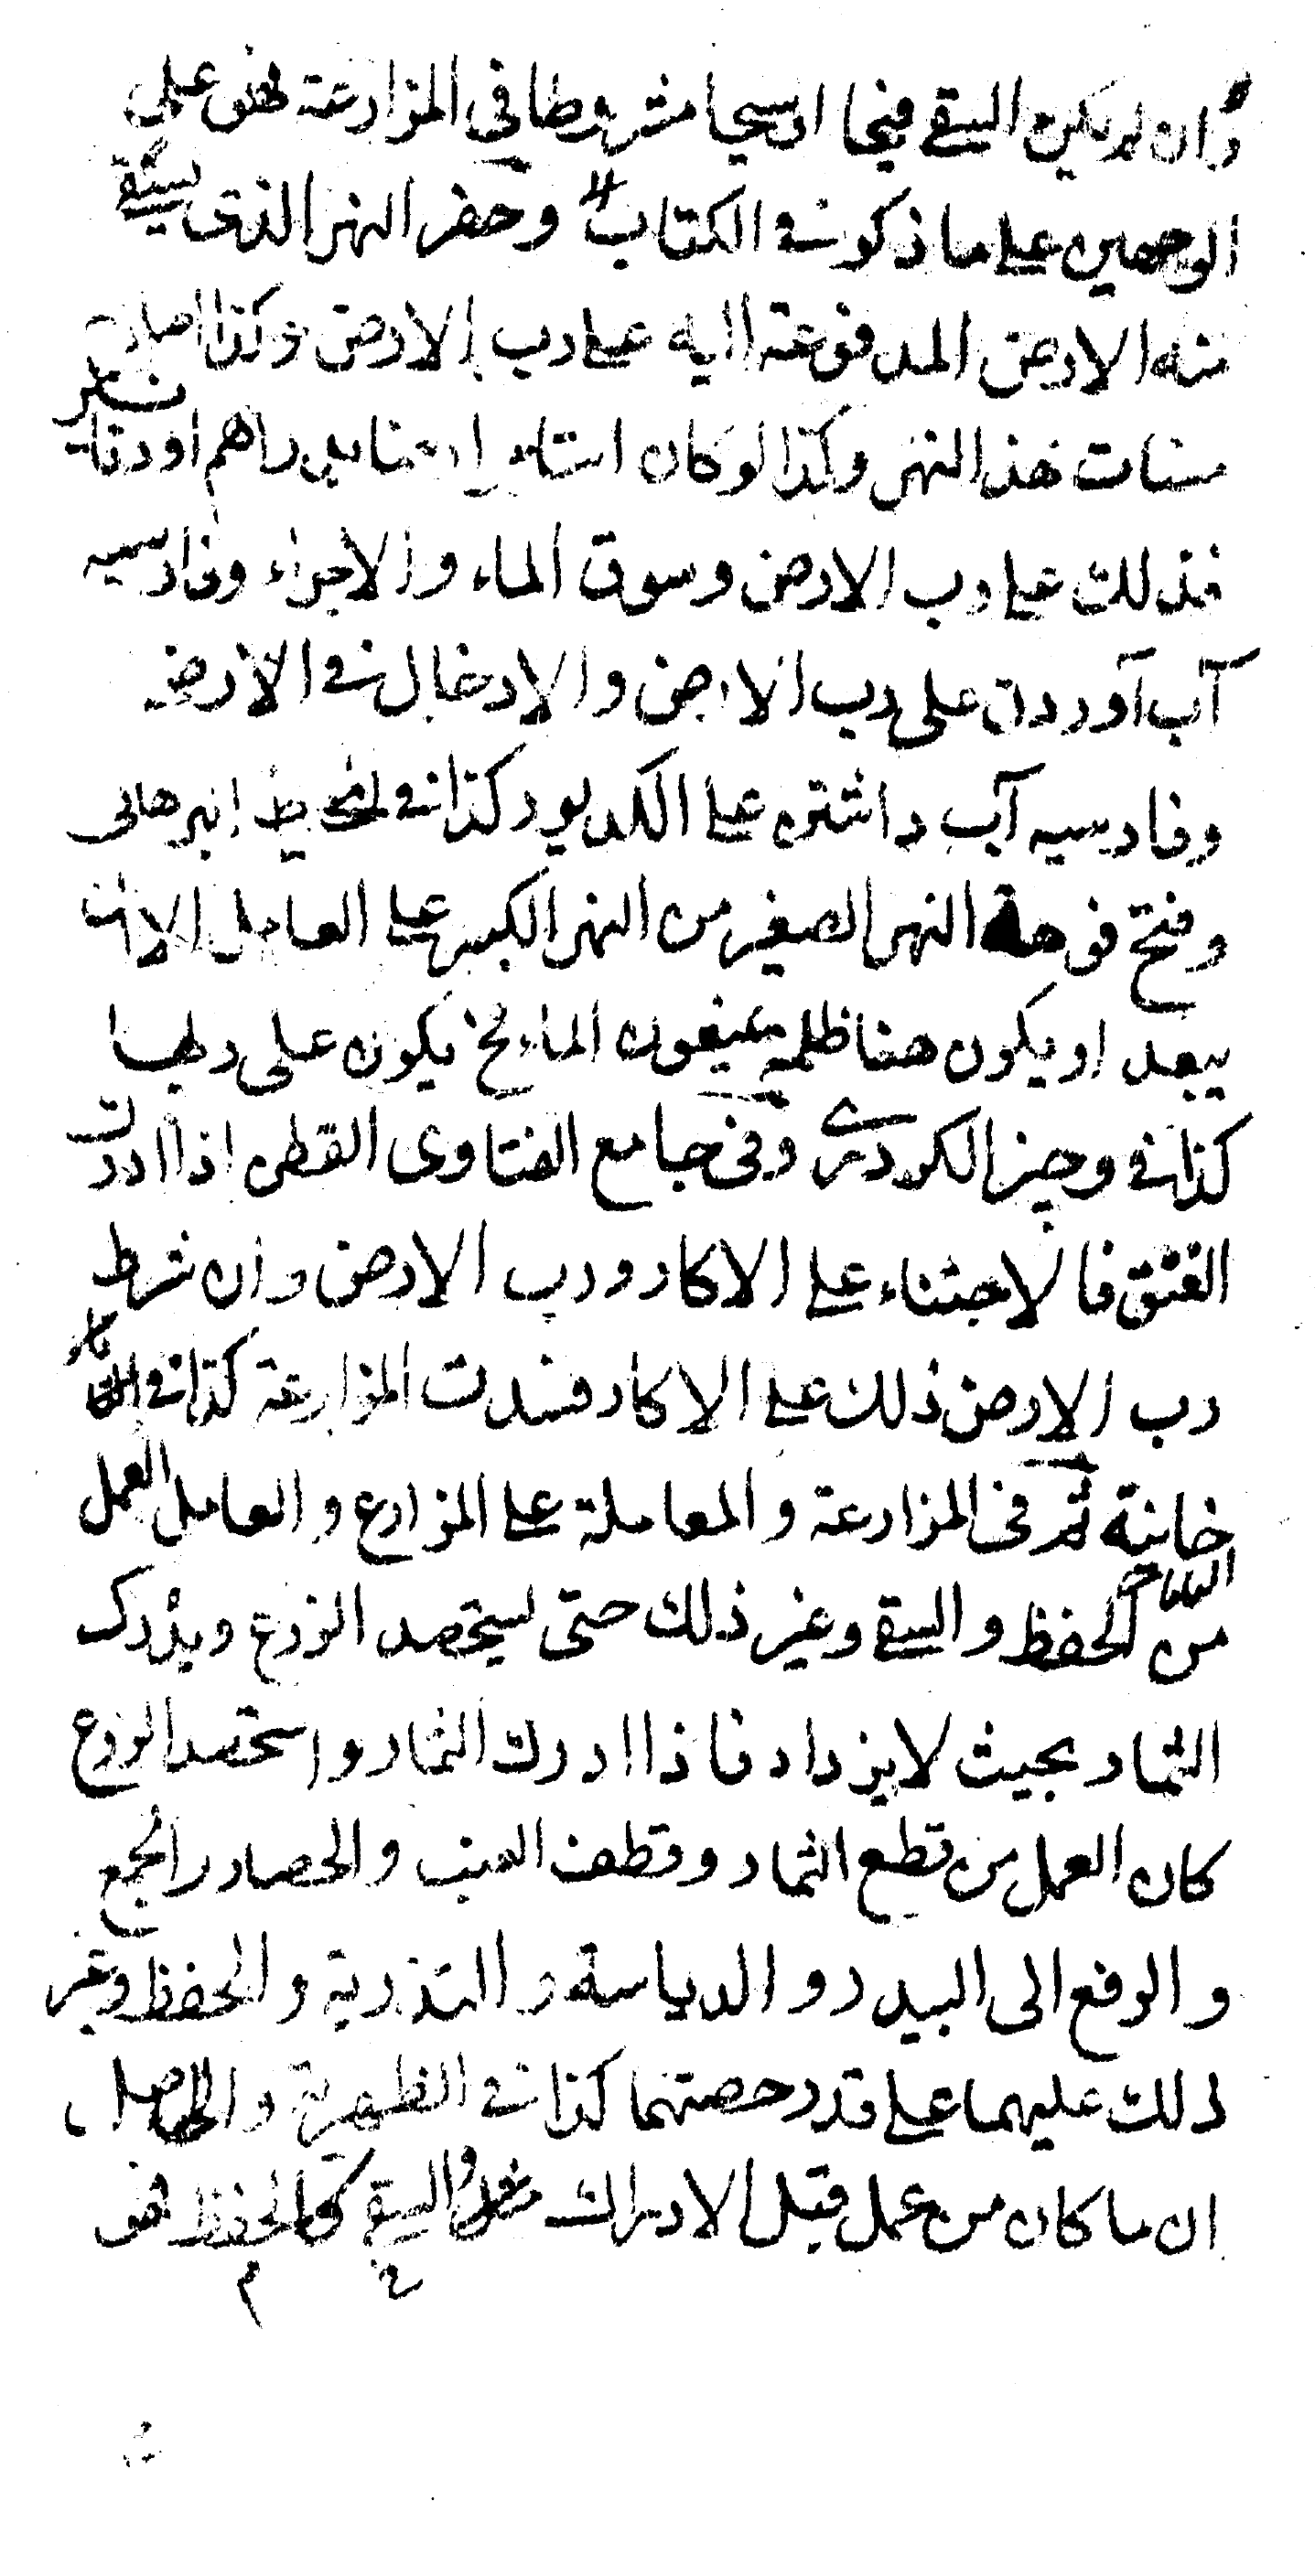 وان لم يكن السقي فيحا او سيحا مشروطا في المزارعة فهو على
الوجهين على ما ذكر في الكتاب وحفر النهر الذي يسقي
منه الارض المدفوعة اليه على رب الارض وكذا اصلاح
مسنات هذا النهر وكذا لو كان دراهم او دنانير
فذلك على رب الارض وسوق الماء والاجراء وفارسيه
آب آوردن على رب الارض والادخال في الارض
وفارسيه آب داشتن على الكديور كذا في المحيط البرهانى
وفتح فوهة النهر الصغير من النهر الكبير على العامل الا ان
يبعد او يكون هنا ظلمة يمنعون الماء فح يكون على ربها
كذا في وجيز الكردري وفى جامع الفتاوى القطن اذا ادرك
الفتق فالاجتناء على الاكار ورب الارض وان شرط
رب الارض ذلك على الاكار فسدت المزارعة كذا في التاتار
خانية ثم فى المزارعة والمعاملة على المزارع والعامل العمل
من الحفظ والسقي وغير ذلك حتى يستحصد الزرع ويدرك
الثمار بحيث لا يزداد فاذا ادرك الثمار واستحصد الزرع
كان العمل من قطع الثمار وقطف العنب والحصاد والجمع
والرفع الى البيدر والدياسة والتذرية والحفظ وغير
ذلك عليهما على قدر حصتهما كذا في الظهيرية والحاصل
ان ما كان من عمل قبل الادراك مثل السقي والحفظ فهو